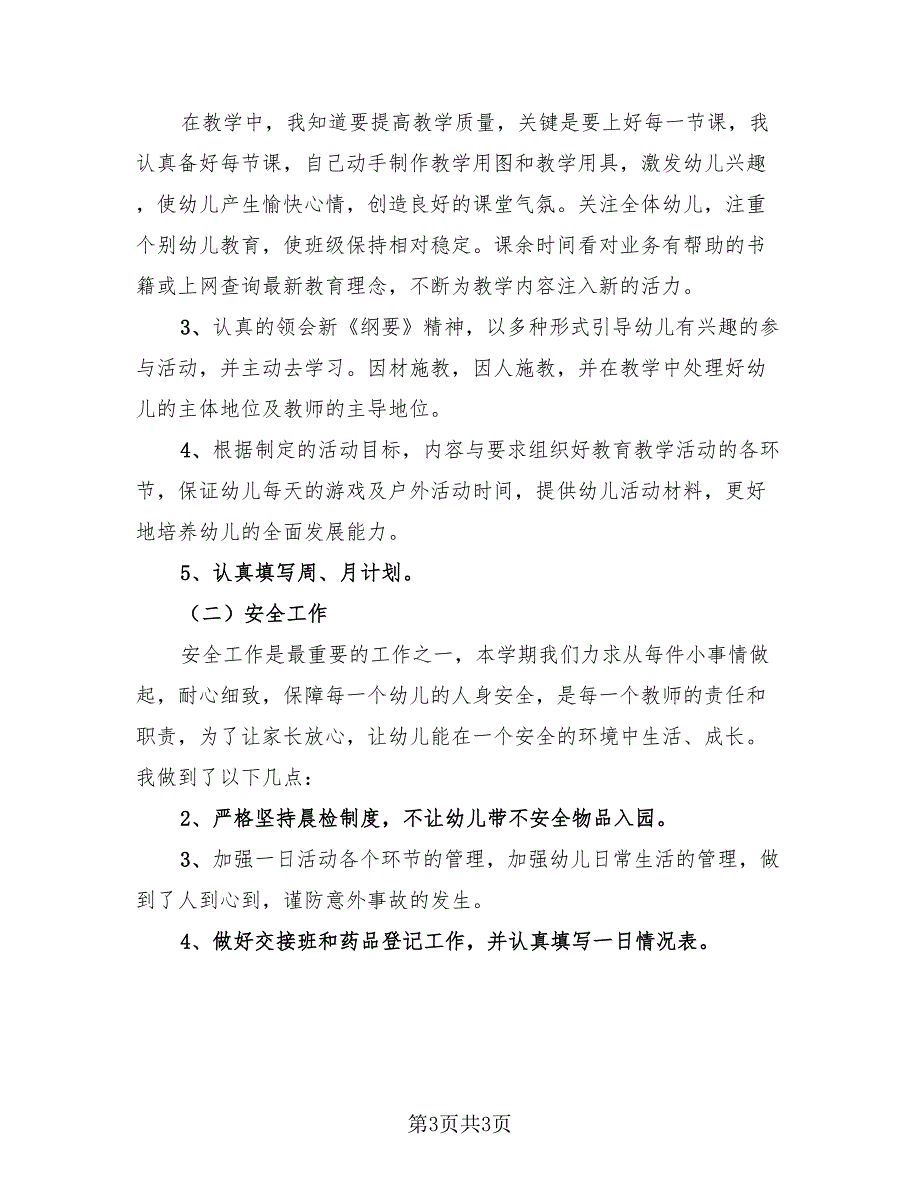 在教学中，我知道要提高教学质量，关键是要上好每一节课，我
认真备好每节课，自己动手制作教学用图和教学用具，激发幼儿兴趣
，使幼儿产生愉快心情，创造良好的课堂气氛。关注全体幼儿，注重
个别幼儿教育，使班级保持相对稳定。课余时间看对业务有帮助的书
籍或上网查询最新教育理念，不断为教学内容注入新的活力。
3、认真的领会新《纲要》精神，以多种形式引导幼儿有兴趣的参
与活动，并主动去学习。因材施教，因人施教，并在教学中处理好幼
儿的主体地位及教师的主导地位。
4、根据制定的活动目标，内容与要求组织好教育教学活动的各环
节，保证幼儿每天的游戏及户外活动时间，提供幼儿活动材料，更好
地培养幼儿的全面发展能力。
5、认真填写周、月计划。
（二）安全工作
安全工作是最重要的工作之一，本学期我们力求从每件小事情做
起，耐心细致，保障每一个幼儿的人身安全，是每一个教师的责任和
职责，为了让家长放心，让幼儿能在一个安全的环境中生活、成长。
我做到了以下几点：
2、严格坚持晨检制度，不让幼儿带不安全物品入园。
3、加强一日活动各个环节的管理，加强幼儿日常生活的管理，做
到了人到心到，谨防意外事故的发生。
4、做好交接班和药品登记工作，并认真填写一日情况表。
第3页共3页